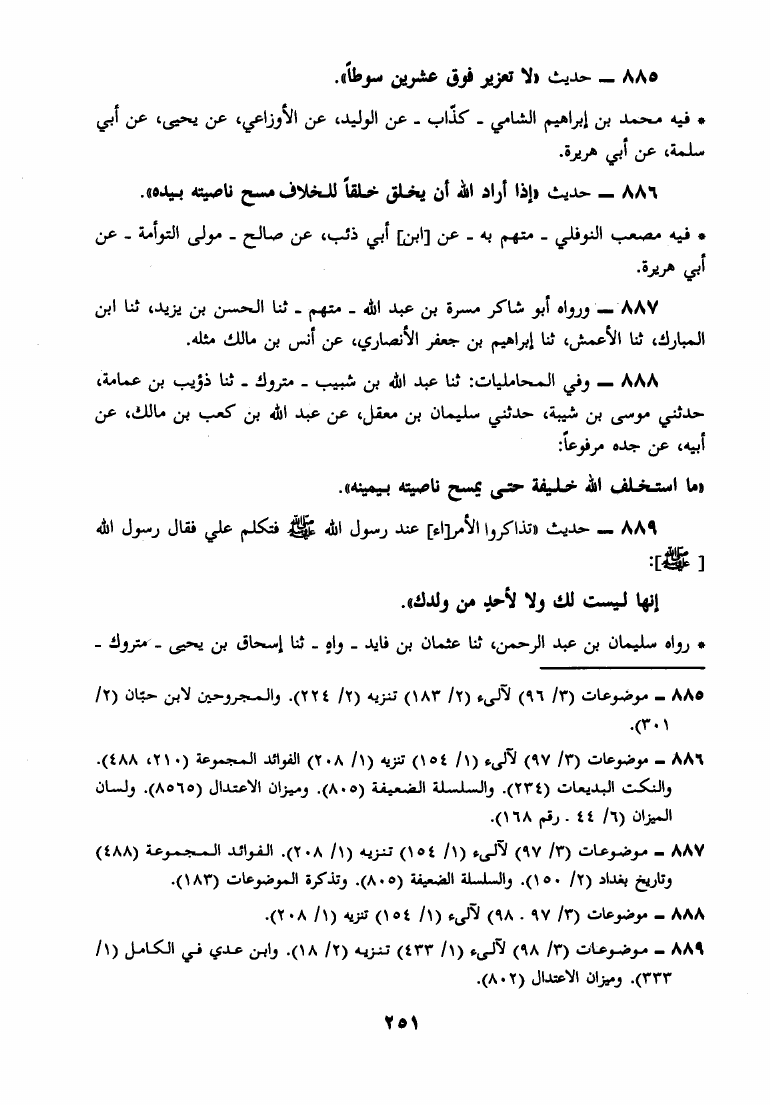 ٨٨٥ ــ حديث «لا تعزير فوق عشرين سوطاً».
* فيه محمد بن إبراهيم الشامي ـ كذّاب ـ عن الوليد، عن الأوزاعي، عن يحيى، عن أبي
سلمة، عن أبي هريرة.
٨٨٦ ــ حديث «إذا أراد الله أن يخلق خلقاً للخلاف مسح ناصيته بيده».
* فيه مصعب النوفلي ـ متهم به ـ عن [ابن] أبي ذئب، عن صالح ـ مولى التوأمة ـ عن
أبي هريرة.
٨٨٧ ــ ورواه أبو شاكر مسرة بن عبد الله ـ متهم ـ ثنا الحسن بن يزيد، ثنا ابن
المبارك، ثنا الأعمش، ثنا إبراهيم بن جعفر الأنصاري، عن أنس بن مالك مثله.
٨٨٨ ــ وفي المحامليات: ثنا عبد الله بن شبيب ـ متروك ـ ثنا ذؤيب بن عمامة،
حدثني موسى بن شيبة، حدثني سليمان بن معقل، عن عبد الله بن كعب بن مالك، عن
أبيه، عن جده مرفوعاً:
«ما استخلف الله خليفة حتى يمسح ناصيته بيمينه».
٨٨٩ ــ حديث «تذاكروا الأمر[اء] عند رسول الله ﷺ فتكلم علي فقال رسول الله
[ﷺ]:
إنها ليست لك ولا لأحدٍ من ولدك».
* رواه سليمان بن عبد الرحمن، ثنا عثمان بن فايد ـ واهٍ ـ ثنا إسحاق بن يحيى ـ متروك ـ
٨٨٥ ـ موضوعات (٣/ ٩٦) لآلىء (٢/ ١٨٣) تنزيه (٢/ ٢٢٤). والمجروحين لابن حبّان (٢/
٣٠١).
٨٨٦ ـ موضوعات (٣/ ٩٧) لآلىء (١/ ١٥٤) تنزيه (١/ ٢٠٨) الفوائد المجموعة (٢١٠، ٤٨٨).
والنكت البديعات (٢٣٤). والسلسلة الضعيفة (٨٠٥). وميزان الاعتدال (٨٥٦٥). ولسان
الميزان (٦/ ٤٤ . رقم ١٦٨).
٨٨٧ ـ موضوعات (٣/ ٩٧) لآلىء (١/ ١٥٤) تنزيه (١/ ٢٠٨). الفوائد المجموعة (٤٨٨)
وتاريخ بغداد (٢/ ١٥٠). والسلسلة الضعيفة (٨٠٥). وتذكرة الموضوعات (١٨٣).
٨٨٨ ـ موضوعات (٣/ ٩٧ . ٩٨) لآلىء (١/ ١٥٤) تنزيه (١/ ٢٠٨).
٨٨٩ ـ موضوعات (٣/ ٩٨) لآلىء (١/ ٤٣٣) تنزيه (٢/ ١٨). وابن عدي في الكامل (١/
٣٣٣). وميزان الاعتدال (٨٠٢).
٢٥١